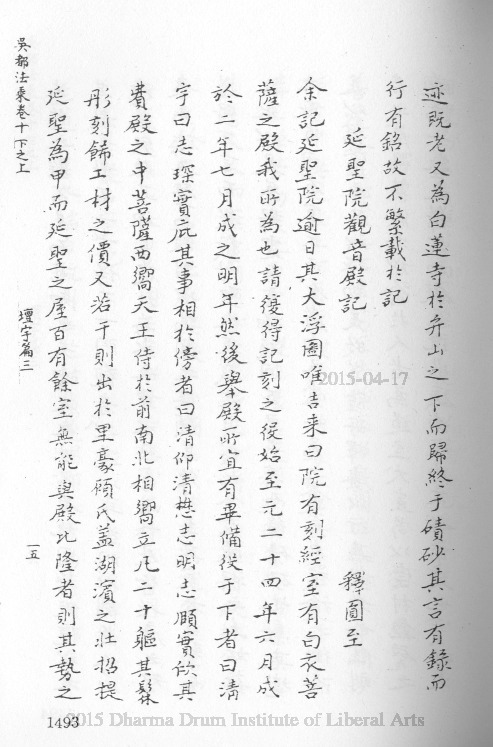 迹既老又為白蓮寺於弁山之下而歸終于磧砂其言有錄而
行有銘故不繁載於記
延聖院觀音殿記
釋圓至
余記延聖院逾日其大浮圖唯吉来曰院有刻經室有白衣菩
薩之殿我所為也請復得記刻之役始至元二十四年六月成
於二年七月成之明年然後舉殿所宜有畢備役于下者曰清
宇曰志琛實庇其事相於傍者曰清仰清懋志明志願實佽其
費殿之中菩薩西嚮天王侍於前南北相嚮立凡二十軀其髹
彤刻餙工材之價又若干則出於里豪顧氏蓋湖濱之壯招提
延聖為甲而延聖之屋百有餘室無能與殿比隆者則其勢之
吳都法乘卷十下之上
壇宇篇三
一五
2015-04-17
1493
2015 Dharma Drum Institute of Liberal Arts